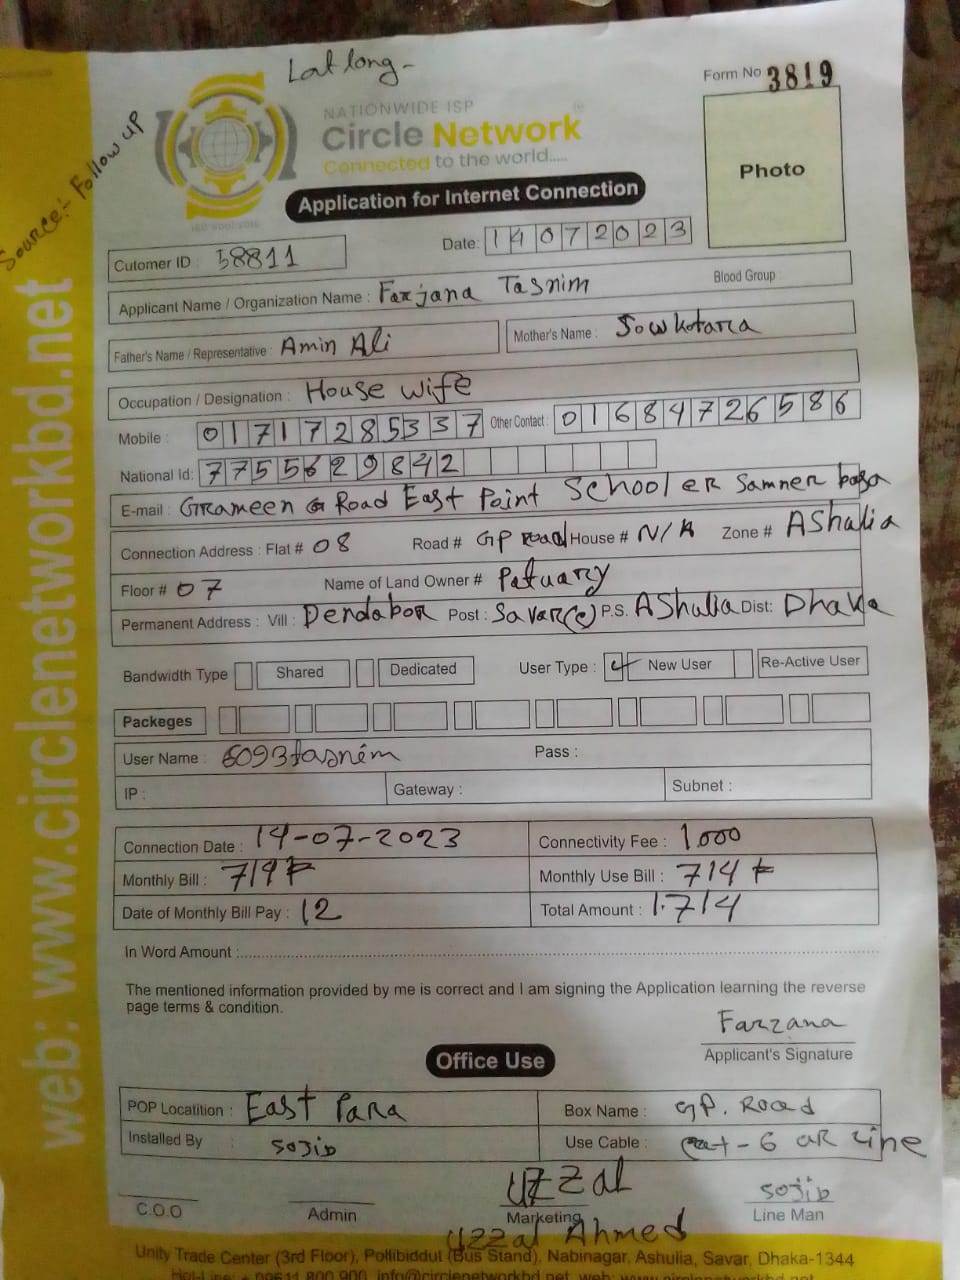 Lat long -
Source:- Follow up
Form No 3819
NATIONWIDE ISP
Circle Network
Connected to the world.....
ISO 9001:2015
Photo
Application for Internet Connection
Date: 14072023
Cutomer ID : 58811
Applicant Name / Organization Name : Farjana Tasnim Blood Group
Father's Name / Representative : Amin Ali Mother's Name : Sowkotara
Occupation / Designation : House wife
Mobile : 01717285337 Other Contact : 01684726586
National Id: 7755629842
E-mail : Grameen Road East Point School er Samner basa
Connection Address : Flat # 08 Road # GP road House # N/A Zone # AShulia
Floor # 07 Name of Land Owner # Patuary
Permanent Address : Vill : Dendabor Post : Savar(c) P.S. AShulia Dist: Dhaka
Bandwidth Type Shared Dedicated User Type : New User Re-Active User
Packeges
User Name : 6093tasnim Pass :
IP : Gateway : Subnet :
Connection Date : 14-07-2023 Connectivity Fee : 1000
Monthly Bill : 714 Monthly Use Bill : 714
Date of Monthly Bill Pay : 12 Total Amount : 1.714
In Word Amount :
The mentioned information provided by me is correct and I am signing the Application learning the reverse
page terms & condition.
Farzana
Applicant's Signature
Office Use
POP Locatition : East Para Box Name : GP. Road
Installed By : Sojib Use Cable : Cat-6 UR Line
Uzzal Sojib
C.O.O Admin Marketing Line Man
Uzzal Ahmed
Unity Trade Center (3rd Floor), Pollibiddut (Bus Stand), Nabinagar, Ashulia, Savar, Dhaka-1344
Hot-Line: + 09611 800 900, info@circlenetworkbd.net, web: www.circlenetworkbd.net
web: www.circlenetworkbd.net